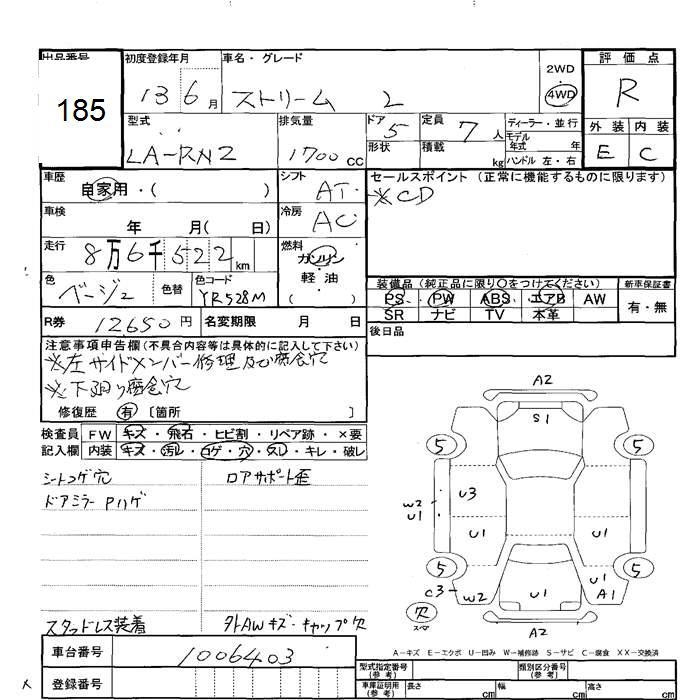 出品番号
185
初度登録年月
13 6月
車名・グレード
ストリーム 2
2WD
4WD
評価点
R
型式
LA-RN2
排気量
1700 CC
ドア 5
形状
定員 7人
積載 kg
ディーラー・並行
モデル年式 年
ハンドル 左・右
外装 内装
E C
車歴
自家用・( )
シフト AT
セールスポイント (正常に機能するものに限ります)
※CD
車検 年 月( 日)
冷房 AC
走行 8万6千522km
燃料 ガソリン
軽・油
( )
色 ベージュ
色替
色コード
YR528M
装備品 (純正品に限り○をつけてください)
PS・PW・ABS・エアB・AW
SR・ナビ・TV・本革
新車保証書
有・無
R券 12650円
名変期限 月 日
後日品
注意事項申告欄 (不具合内容等は具体的に記入して下さい)
※左サイドメンバー修理及び腐食穴
※下廻り腐食穴
修復歴 有 〔箇所 〕
検査員 FW キズ・飛石・ヒビ割・リペア跡・×要
記入欄 内装 キズ・汚レ・コゲ・穴・スレ・キレ・破レ
シートコゲ穴
ロアサポート歪
ドアミラーPハゲ
スタッドレス装着
外AWキズ・キャップ欠
A2
S1
5
5
U3
W2
U1
U1
U1
5
5
C3
W2
U1
U1
A1
欠
スペア
A2
A-キズ E-エクボ U-凹み W-補修跡 S-サビ C-腐食 XX-交換済
車台番号 1006403
登録番号
型式指定番号
(参考)
類別区分番号
(参考)
車庫証明用
(参考)
長さ cm
幅 cm
高さ cm